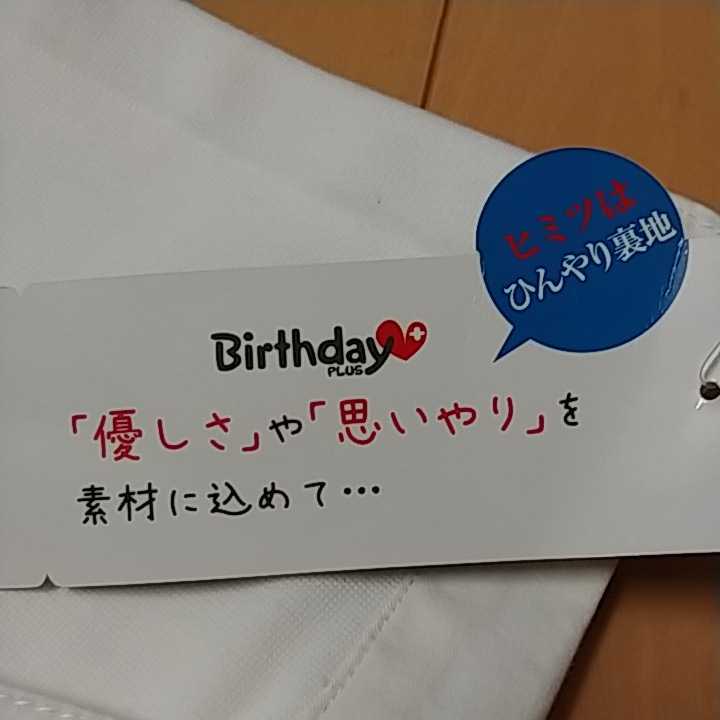 ヒミツは
ひんやり裏地
Birthday
PLUS
「優しさ」や「思いやり」を
素材に込めて…